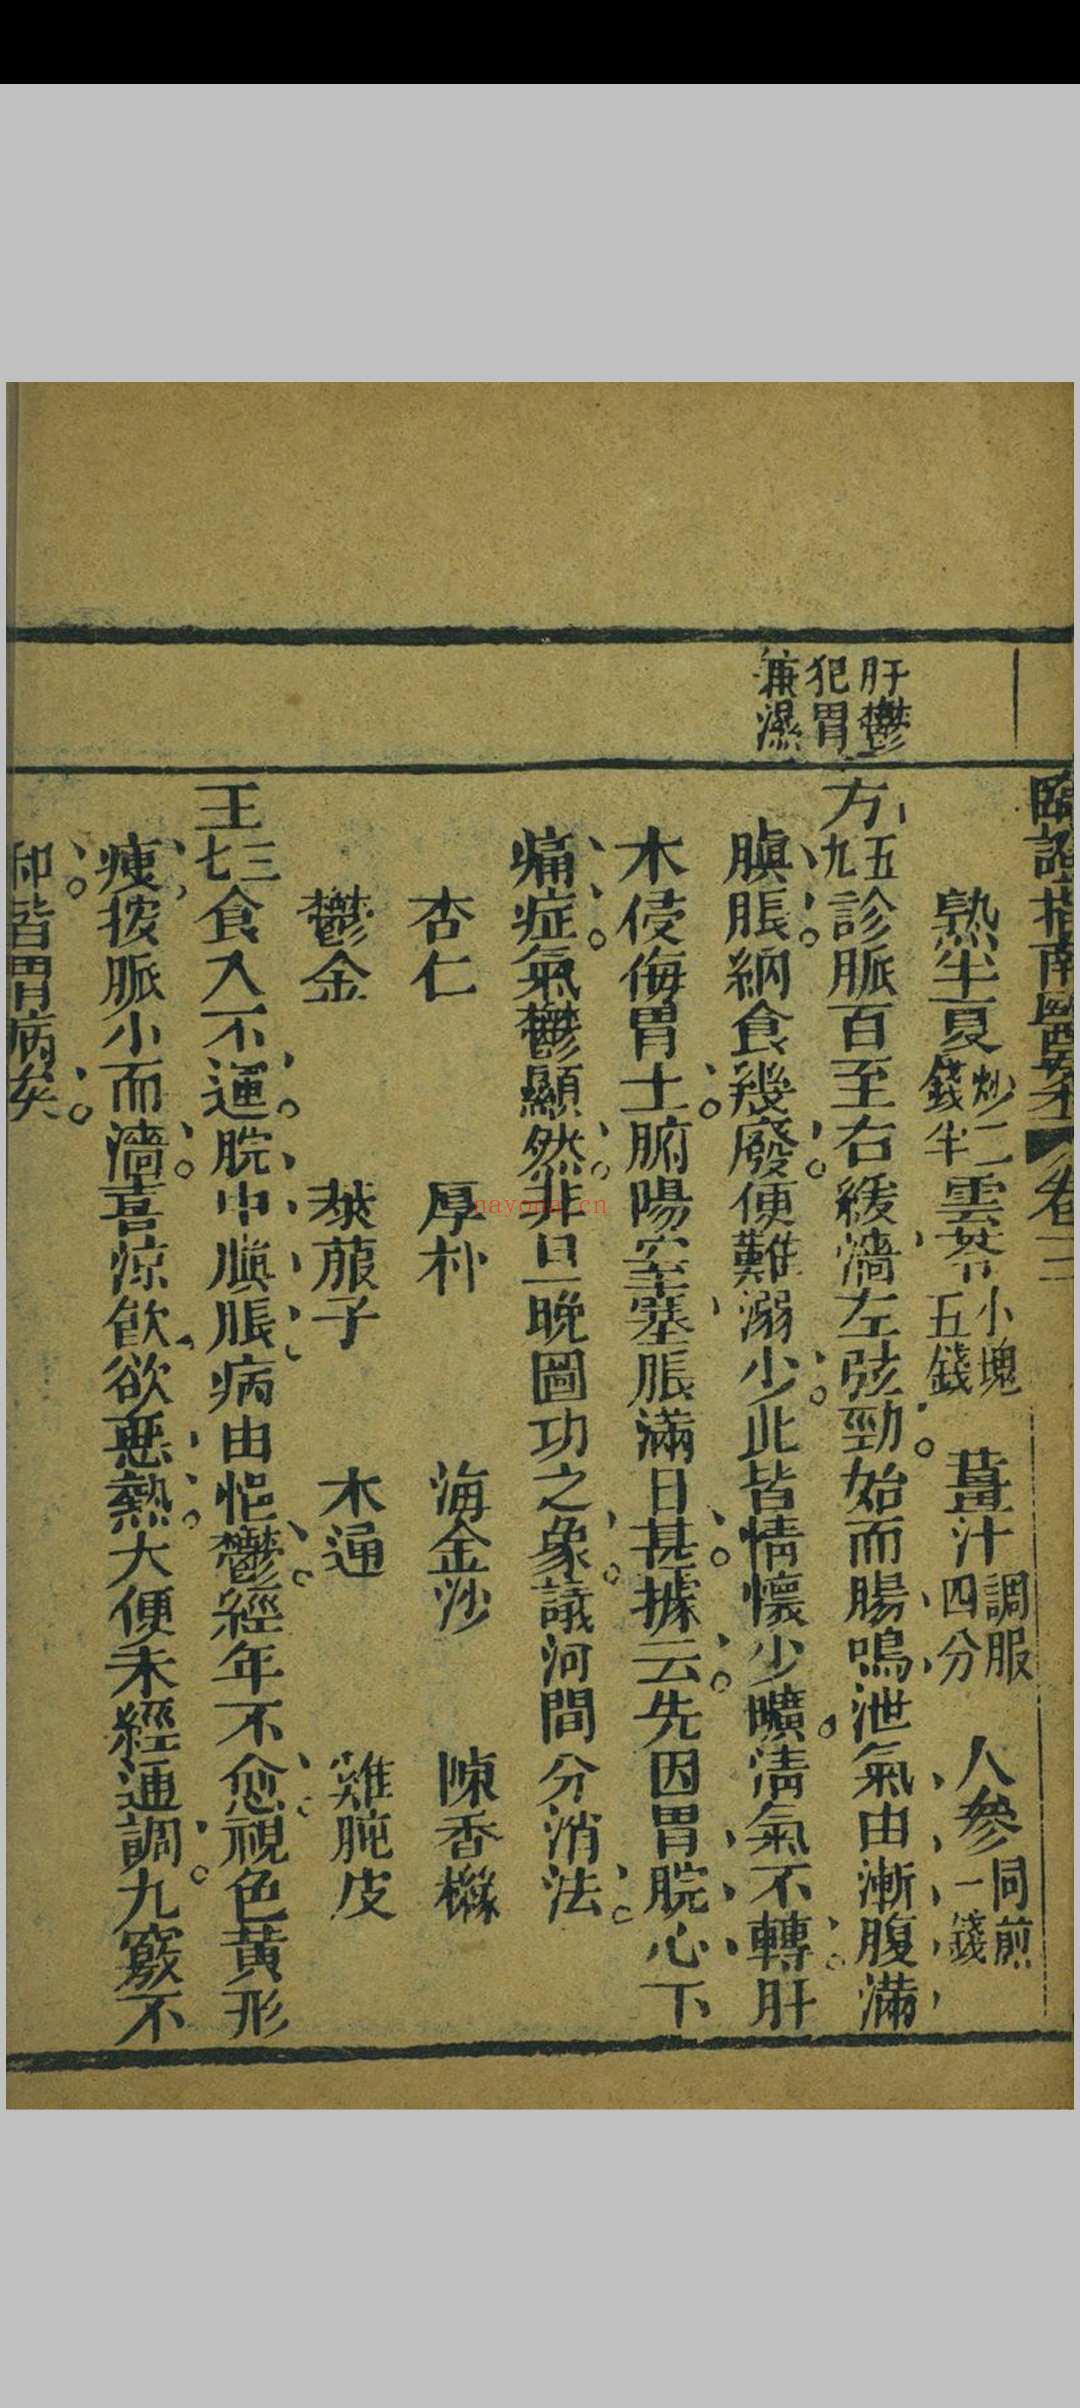 臨證指南醫案 卷三
熟半夏炒二錢半 雲苓小塊五錢 薑汁調服四分 人參同煎一錢
肝鬱
犯胃
兼濕
方五九診脈百至右緩濇左弦勁始而腸鳴泄氣由漸腹滿
䐜脹納食幾廢便難溺少此皆情懷少曠清氣不轉肝
木侵侮胃土腑陽窒塞脹滿日甚據云先因胃脘心下
痛症氣鬱顯然非旦晚圖功之象議河間分消法
杏仁 厚朴 海金沙 陳香櫞
鬱金 萊菔子 木通 雞肫皮
王三七食入不運脘中䐜脹病由悒鬱經年不愈視色黃形
瘦按脈小而濇喜涼飲欲惡熱大便未經通調九竅不
和皆胃病矣
nayona.cn